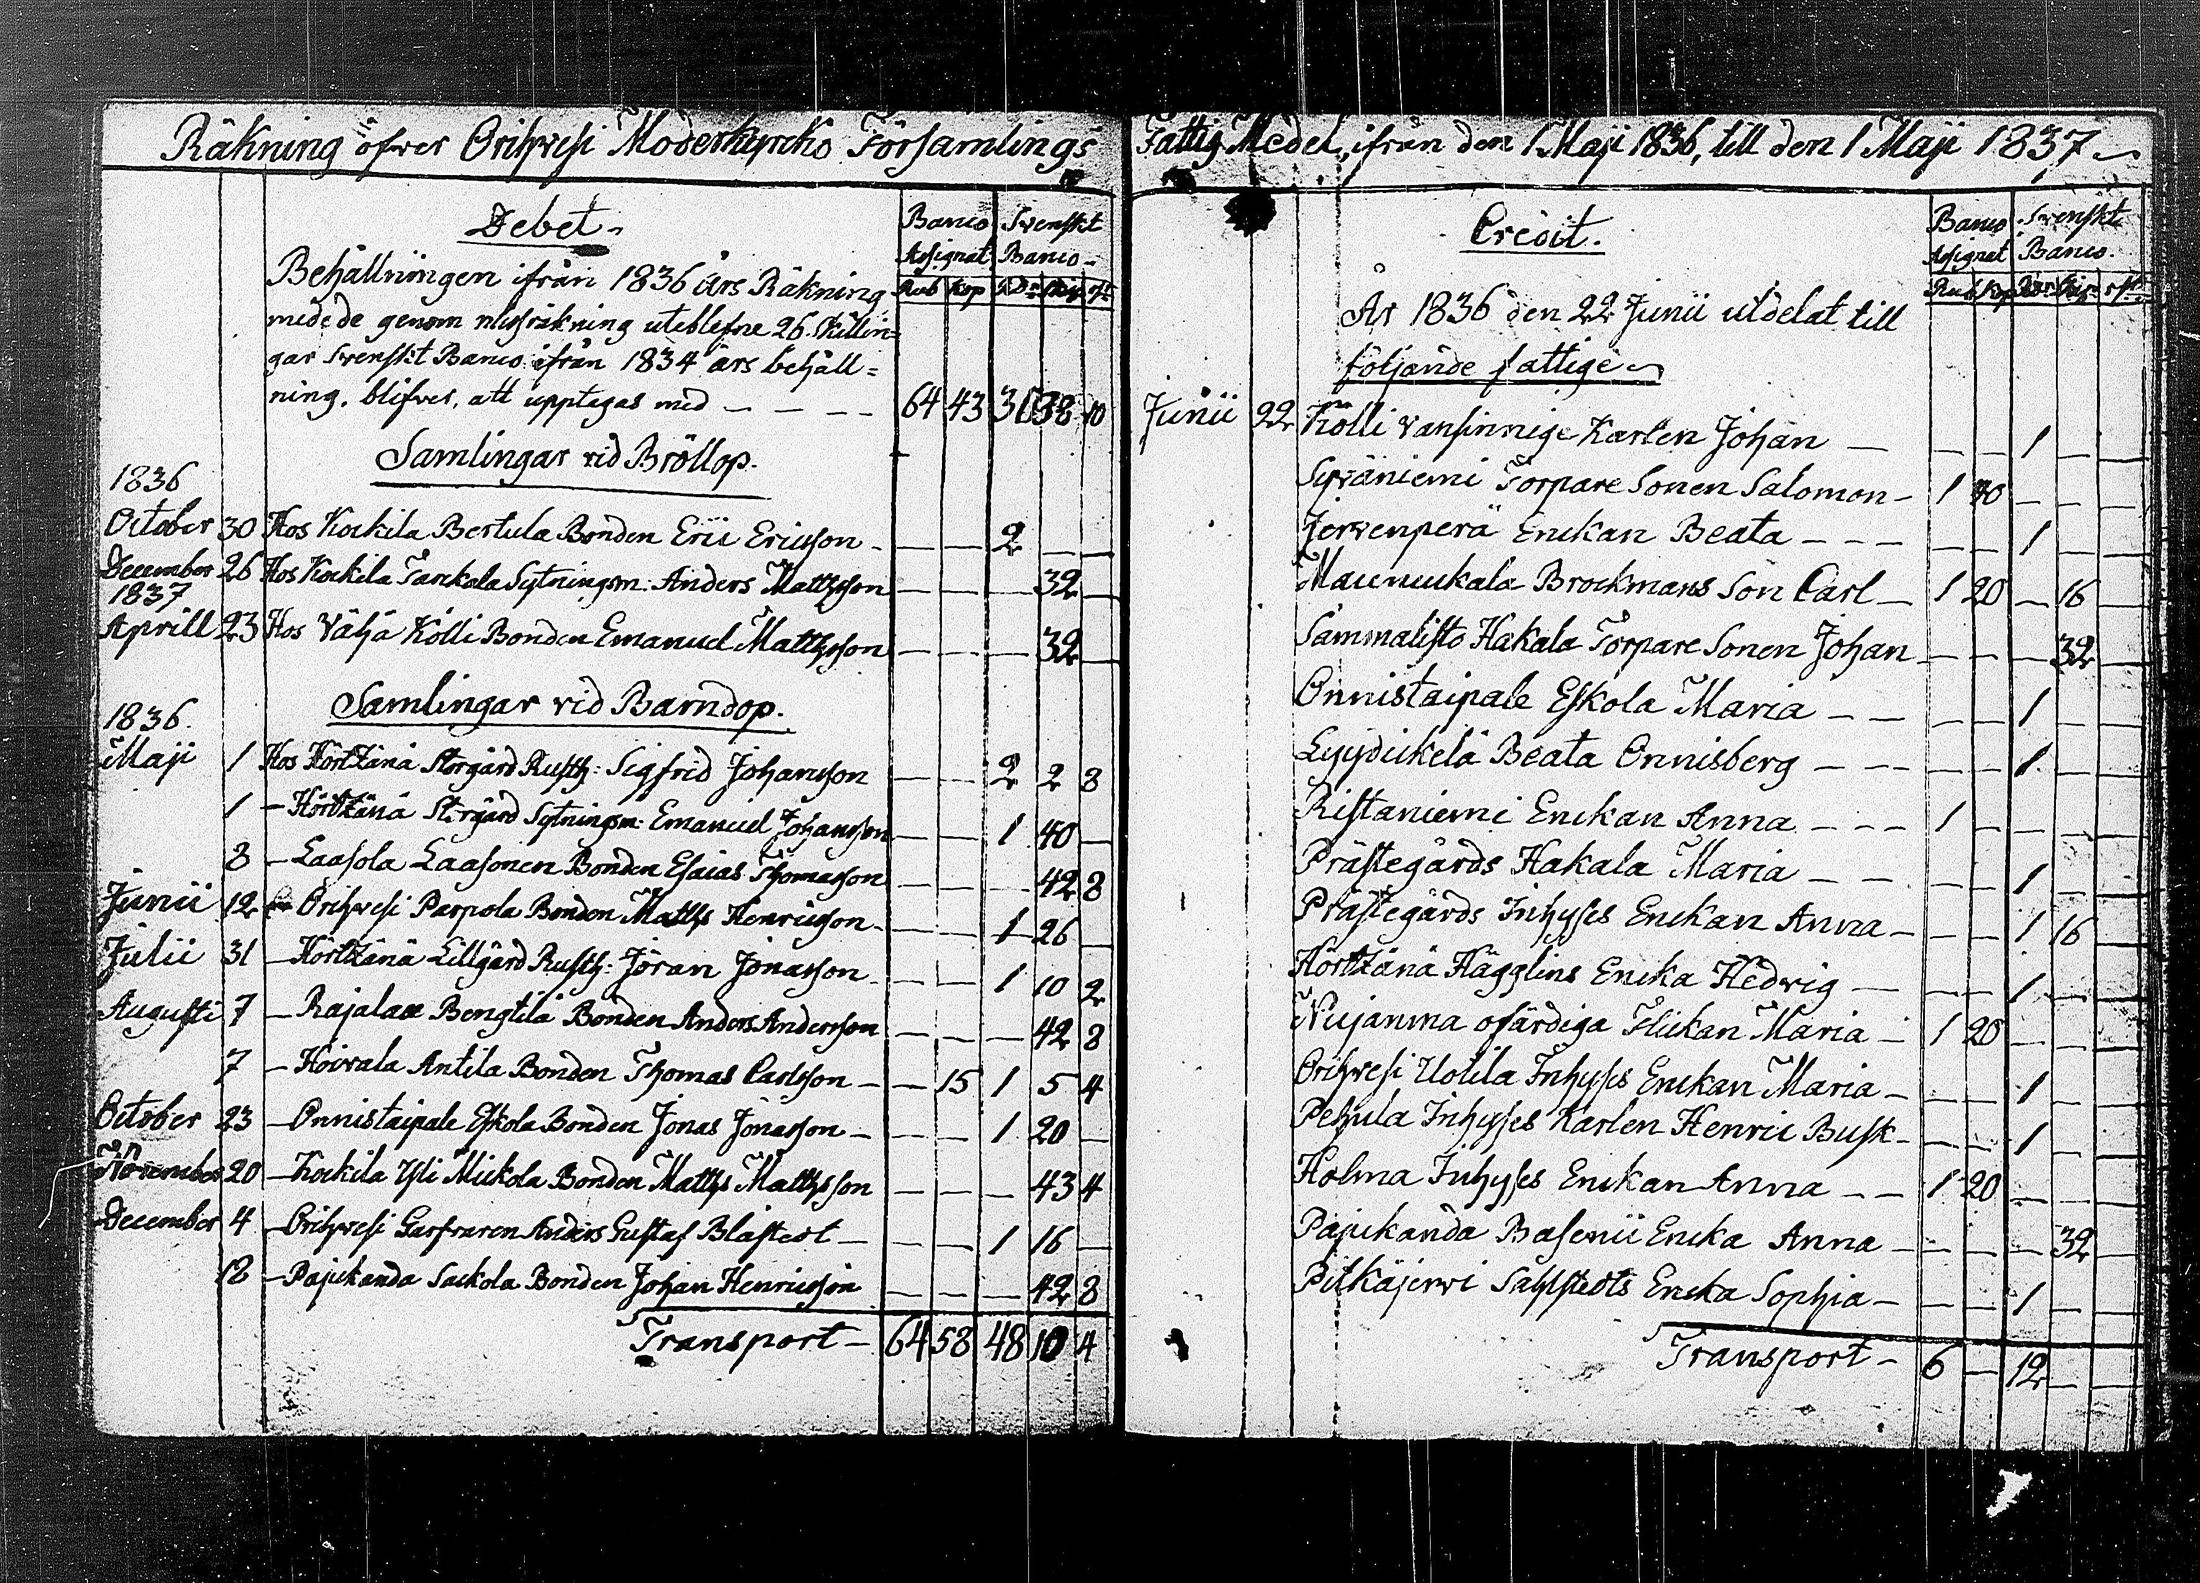 Räkning öfver Orihvesi Moderkyrcko Församlings Fattig Medel, ifrån den 1 Maji 1836, till den 1 Maji 1837
Debet
Banco Assignat Svenskt Banco
Rub Kop RDr
Behållningen ifrån 1836 års Räkning
medede genom uteblefne 26 Skillin=
gar Svenskt Banco ifrån 1834 års behåll=
ning, blifver, att upptagas med — — — — 64 43 38 10
Samlingar vid Bröllop.
1836
October 30 Hos Kockila Bertula Bonden Eric Ericsson — — — 2 — —
December 26 Hos Kockila Sytningsm: Anders Mattsson — — — 32 —
1837
Aprill 23 Hos Väljä Kolli Bonden Emanuel Mattsson — — — 32 —
Samlingar vid Barndop.
1836.
Maji 1 Hos Hörtzänä Storgård Rusth: Sigfrid Johansson — — 2 2 8
1 — Hörtzänä Storgård Sytningsm: Emanuel Johansson — — 1 40 —
8 — Laasola Laasonen Bonden Esaias Thomasson — — — 42 8
Junii 12 Orihvesi Parpola Bonden Matths Henricsson — — 1 26 —
Julii 31 — Hörtzänä Lillgård Rusth: Jöran Jonasson — — 1 10 2
Augusti 7 — Rajalax Bengtilä Bonden Anders Andersson — — — 42 8
7 — Koivala Antila Bonden Thomas Carlsson — — 15 1 5 4
October 23 — Onnistaipale Eskola Bonden Jonas Jonasson — — — 1 20 —
November 20 — Kockila Yli Mickola Bonden Matths Matthsson — — — 43 4
December 4 — Orihvesi Garfvaren Anders Gustaf Blåstedt — — — 1 16 —
18 — Pajukanda Sackola Bonden Johan Henricsson — — — 42 8
Transport — 64 58 48 10 4
Credit.
Banco Assignat Svenskt Banco.
Rub Kop
År 1836 den 22 Junii utdelat till
följande fattige
Junii 22 Kolli vansinnige Karlen Johan — — — 1 — —
Syväniemi Torpare Sonen Salomon — 1 40 — — —
Jervenperä Enckan Beata — — — — — 1 — —
Maunuukala Brockmans Son Carl — 1 20 — 16 —
Sammalisto Hakala Torpare Sonen Johan — — — 32 —
Onnistaipale Eskola Maria — — — — 1 — —
Lyydickelä Beata Onnisberg — — — — 1 — —
Ristaniemi Enckan Anna — — — 1 — — — —
Prästegårds Hakala Maria — — — — 1 — —
Prästegårds Inhyses Enckan Anna — — — 1 16 —
Hörtzänä Hägglins Encka Hedvig — — — 1 — —
Nujanma ofärdiga Flickan Maria — 1 20 — — —
Orihvesi Uotila Inhyses Enckan Maria — — — 1 — —
Pehula Inhyses Karlen Henric Busk — — — 1 — —
Holma Inhyses Enckan Anna — — 1 20 — — —
Pajukanda Encka Anna — — — — 32 —
Pitkäjervi Sahlstedts Encka Sophia — — — 1 — —
Transport — 6 — 12 — —